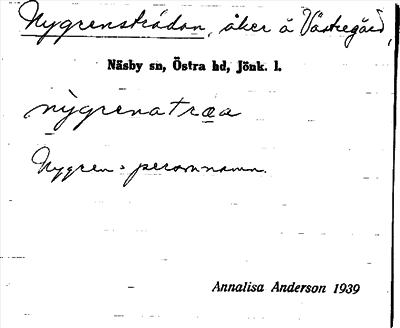 Nygrensträdan, åker å Västregård,
Näsby sn, Östra hd, Jönk. l.
nỳgrenatræa
Nygren = personnamn.
Annalisa Anderson 1939